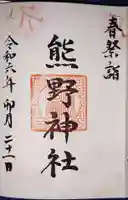 春祭詣
熊野神社
令和六年卯月二十一日